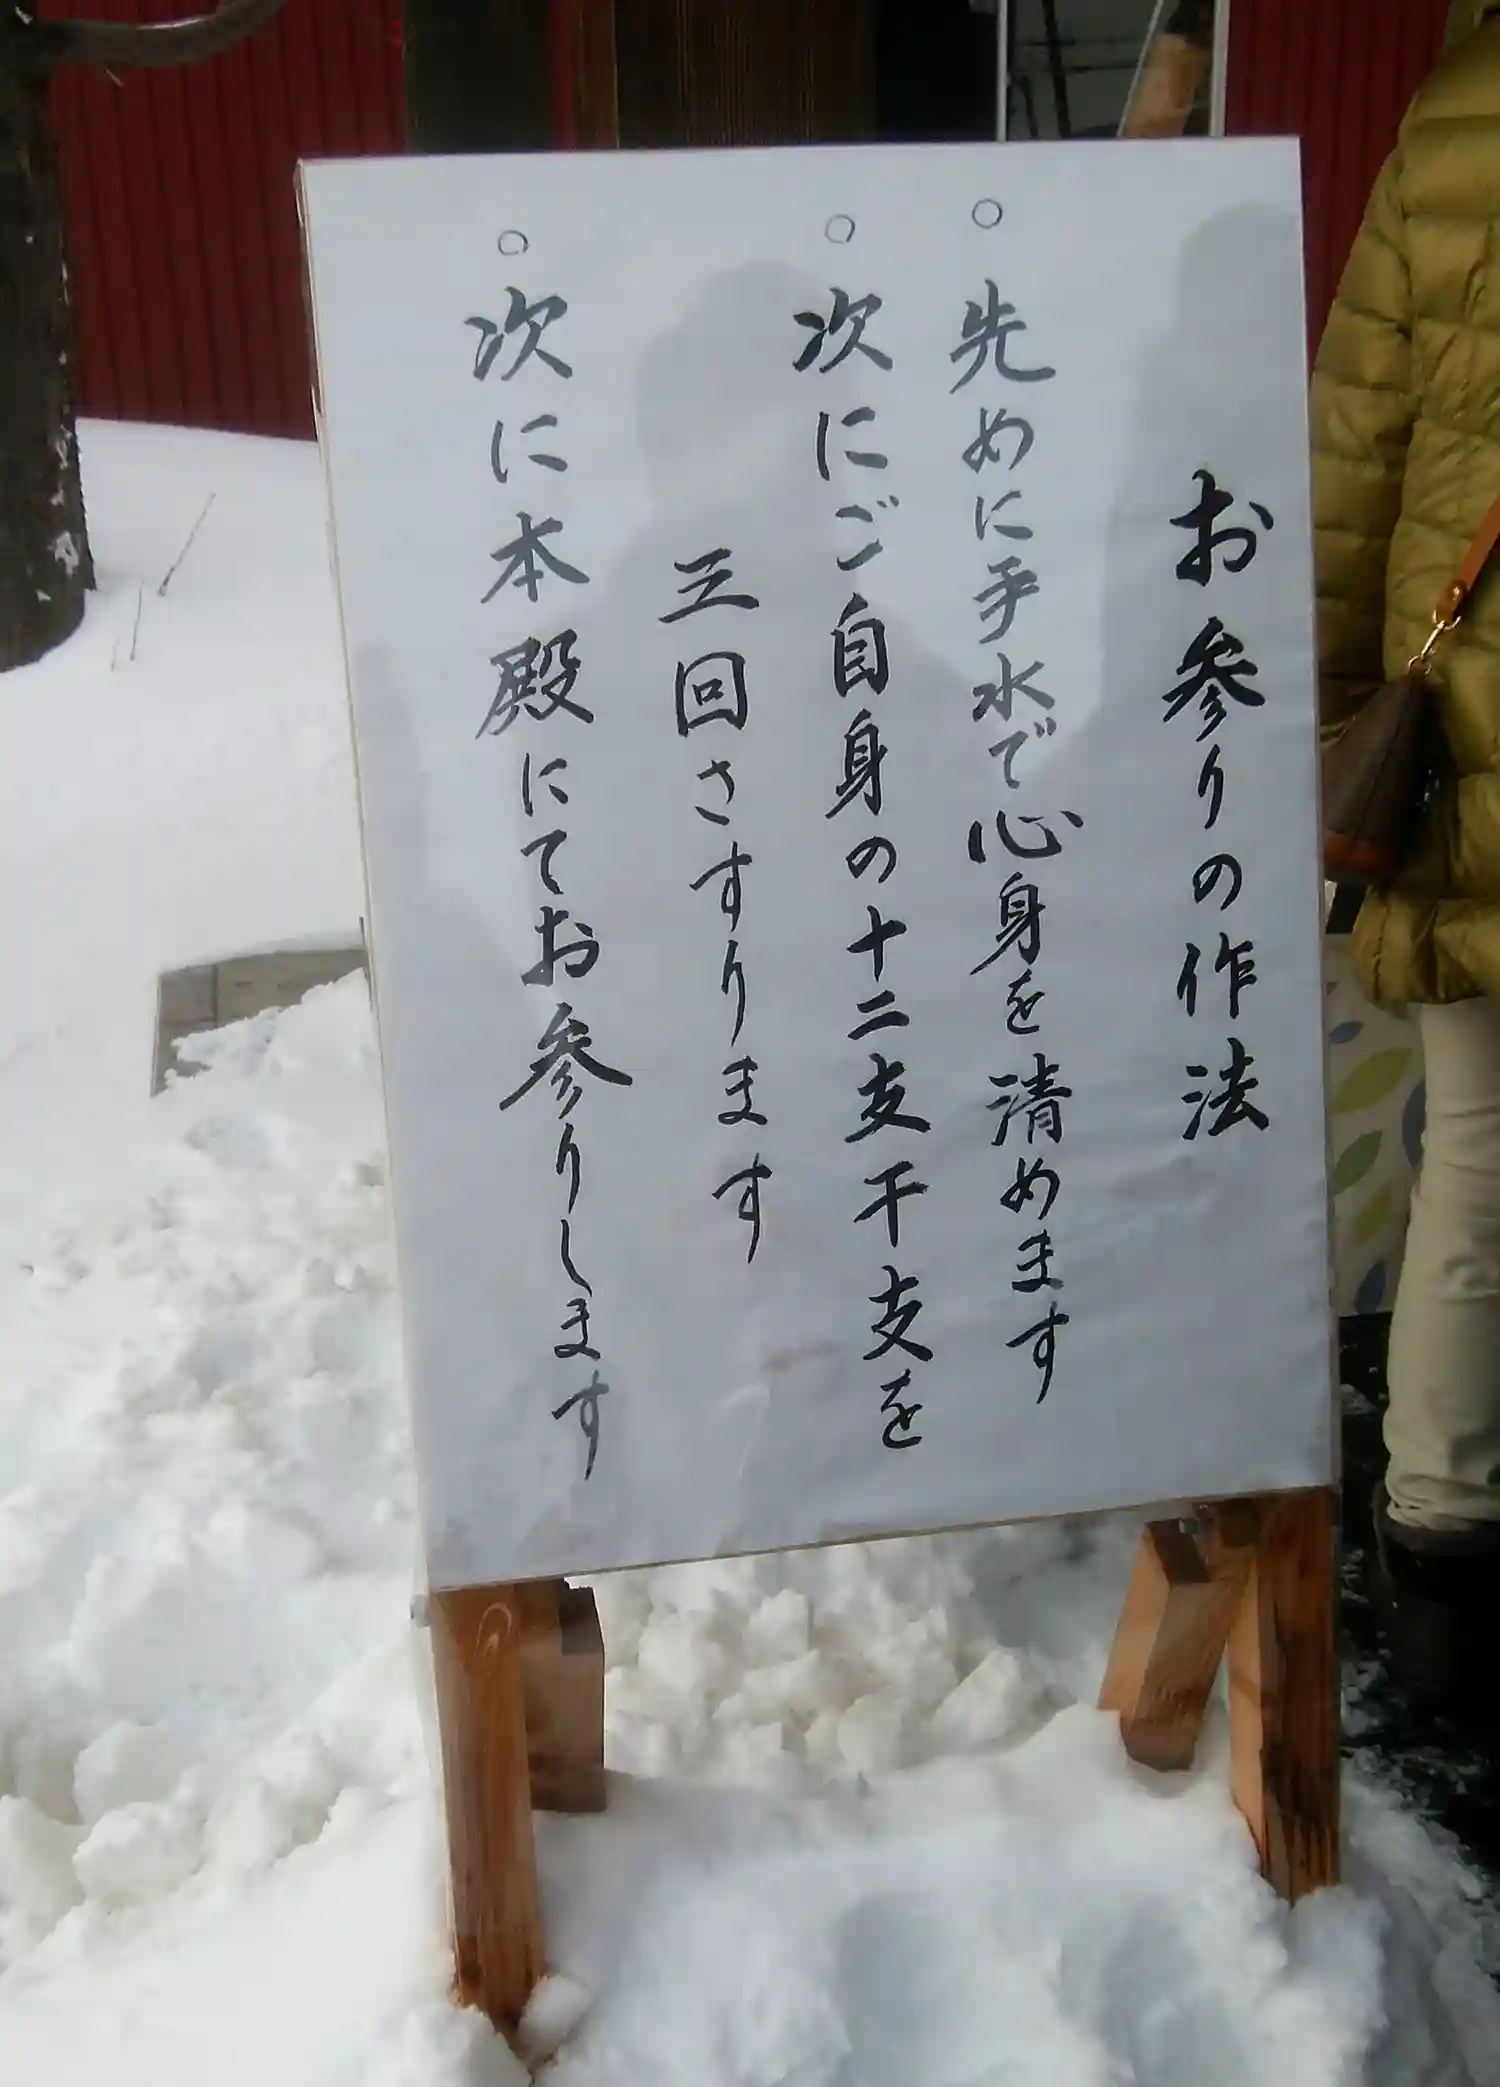 お参りの作法
○ 先めに手水で心身を清めます
○ 次にご自身の十二支干支を
三回さすります
○ 次に本殿にてお参りします